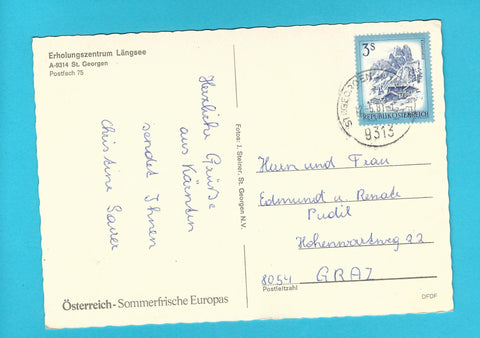 Erholungszentrum Längsee
A-9314 St. Georgen
Postfach 75
Herzliche Grüße
aus Kärnten
sendet Ihnen
Christine
Österreich - Sommerfrische Europas
Fotos: J. Steiner, St. Georgen N.V.
3S
REPUBLIK ÖSTERREICH
ST. GEORGEN
9313
Herrn und Frau
Edmund u. Renate
Pudil
Hohenwartweg 22
8054 GRAZ
Postleitzahl
DFDF